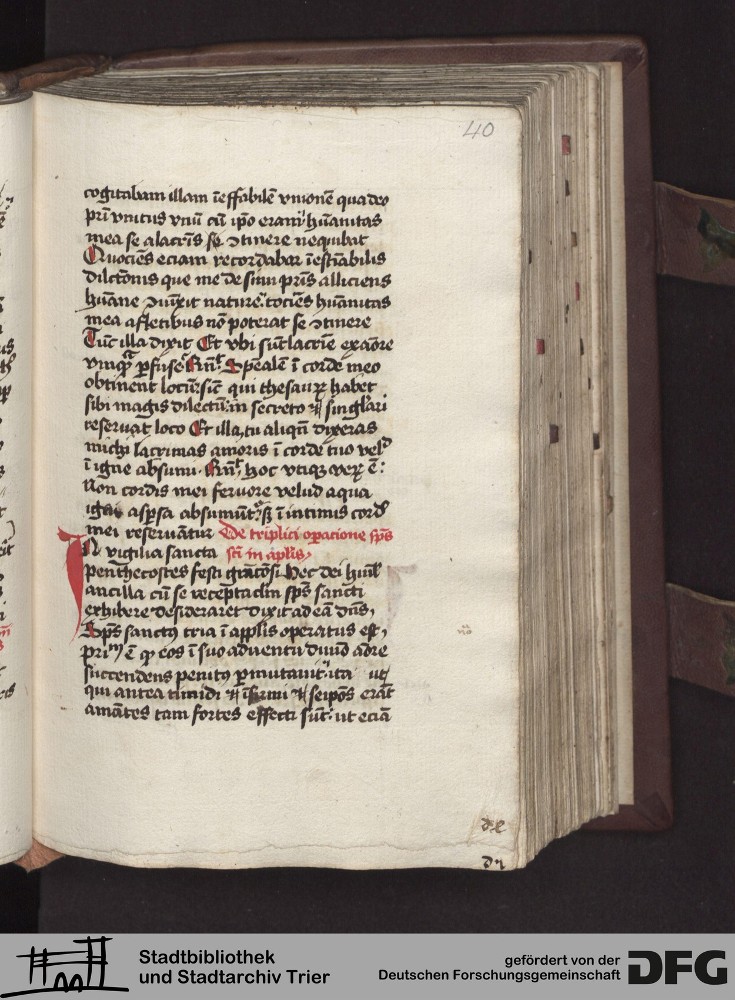 40
cogitabam illam ineffabilē vnionē qua deo
pri vnitus vnū cū ipo eram huānitas
mea se alacris se ↄtinere nequibat
Quociēs eciam recordabar īestīabilis
dilctōnis que me de sinu pris alliciens
huāne ↄiūxit nature tociēs huānitas
mea affctibus nō poterat se ↄtinere
Tūc illa dixit Et vbi sūt lacrīe ex amore
vmqᷓ pfuse Spealē ī corde meo
obtinent locū sic qui thesaurū habet
sibi magis dilectū in secreto singlari
reseruat loco Et illa tu aliqn̄ dixeras
michi lacrimas amoris ī corde tuo vel
ī igne absumi hoc vtiqꝫ verū ē
Non cordis mei feruore velud aqua
igni aspsa absumūt ī intimis cord
mei reseruātur De triplici oparacione sps
IN vigilia sancta sci in aplis
penthecostes festi Hec dei
ancilla cū se receptaclm sps sancti
exhibere desideraret dixit ad eā dn̄s
Sps sanctꝰ tria ī applis operatus est
prīm ē qꝫ eos ī suo aduentu diuīo adre
succendens penitꝰ pmutauit ita ut
qui antea timidi et infirmi et seipōs erāt
amātes tam fortes effecti sūt ut eciā
de
Stadtbibliothek
und Stadtarchiv Trier
gefördert von der
Deutschen Forschungsgemeinschaft
DFG